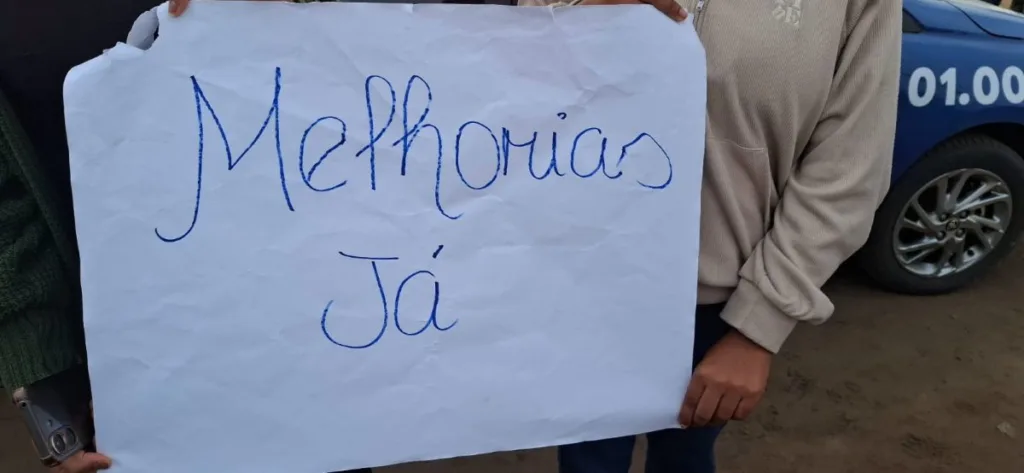 Melhorias
Já
01.00